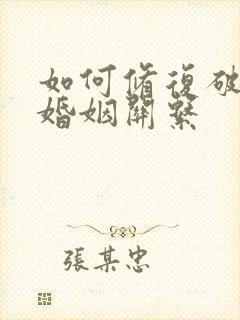 如何修復破
婚姻關繫
張某忠